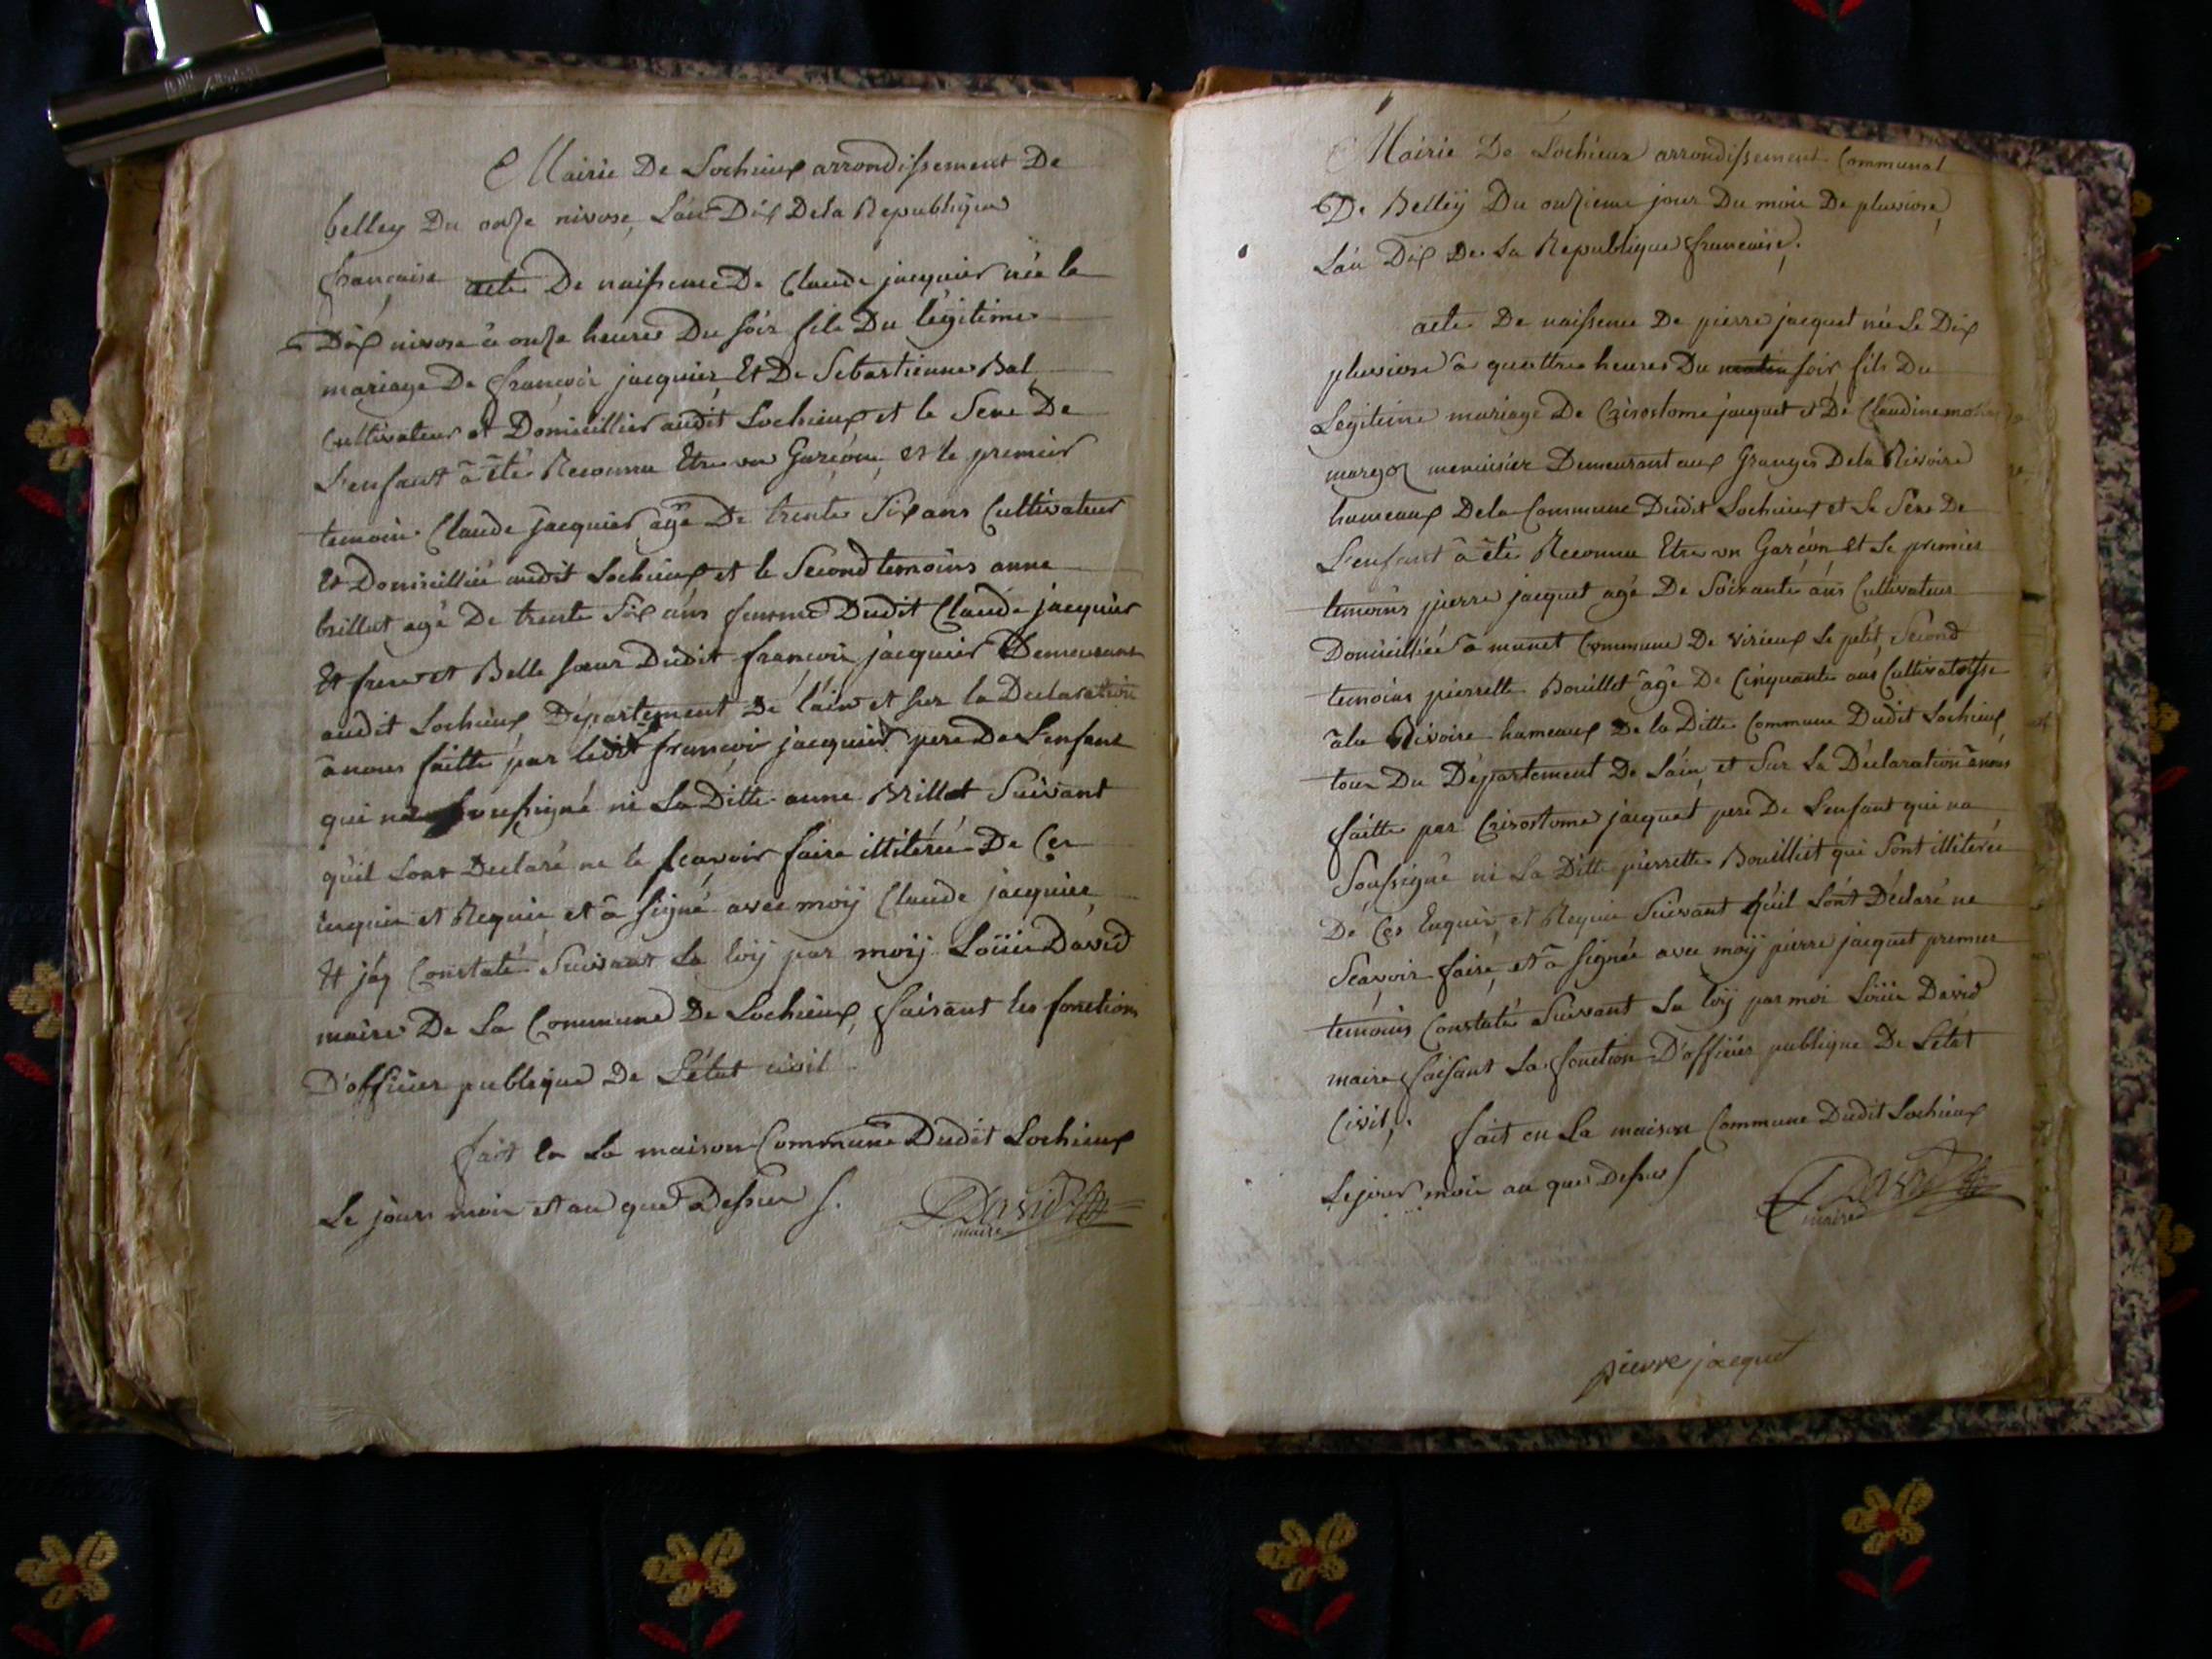 Mairie De Lochieux arrondissement De
belley Du onze nivose, L'an Dix De la Republique
française acte De naissence De Claude jacquier née le
Dix nivose à onze heures Du soir fils Du légitime
mariage De françois jacquier Et De Sebastienne Bal
Cultivateur et Domicillier audit Lochieux et le Sexe De
L'enfant à été Reconnu Etre un Garçon, et le premier
temoin Claude jacquier âgé De trente Six ans Cultivateur
Et Domicillié audit Lochieux et le Second temoins anne
brillet agé De trente Six ans femme Dudit Claude jacquier
Et frere et Belle sœur Dudit françois jacquier Demeurant
audit Lochieux Département De l'ain et sur la Declaration
à nous faitte par ledit françois jacquier pere De L'enfant
qui na soussigné ni La Ditte anne Brillet Suivant
quil Sont Declaré ne le sçavoir faire illitérée De Ces
enquis et Requis et à signé avec moÿ Claude jacquier
Et jáÿ Constaté Suivant La loÿ par moÿ Loüis David
maire De La Commune De Lochieux, faisant les fonctions
D'officier publique De L'état civil
fait en La maison Commune Dudit Lochieux
Le jours mois et an que Dessus
David
maire
Mairie De Lochieux arrondissement Communal
De Belleÿ Du onzieme jour Du mois De pluviose
L'an Dix De La Republique francaise.
acte De naissence De pierre jacquet née Le Dix
pluviose à quattre heures Du soir fils Du
Legitime mariage De Crisostome jacquet et De Claudine
menuisier Demeurant aux Granges De la Rivoire
hameaux De la Commune Dudit Lochieux et Le Sexe De
L'enfant à été Reconnu Etre un Garçon Et Le premier
temoins pierre jacquet agé De Soixante ans Cultivateur
Domicilliée à munet Commune De virieux Le petit, Second
temoins pierrette Bouillet âgé De Cinquante ans Cultivatrisse
à la Rivoire hameaux De la Ditte Commune Dudit Lochieux
tous Du Département De L'ain, et Sur La Déclaration à nous
faitte par Crisostome jacquet pere De L'enfant qui na
Soussigné ni La Ditte pierrette Bouillet qui Sont illitérée
De Ces Enquis, et Requis Suivant quil Sont Déclaré ne
Sçavoir faire, et à signée avec moÿ pierre jacquet premier
temoins Constaté Suivant La loÿ par moi Loüis David
maire faisant La fonction D'officier publique De L'etat
Civil.
fait en La maison Commune Dudit Lochieux
Le jour mois an que Dessus
David
maire
pierre jacquet